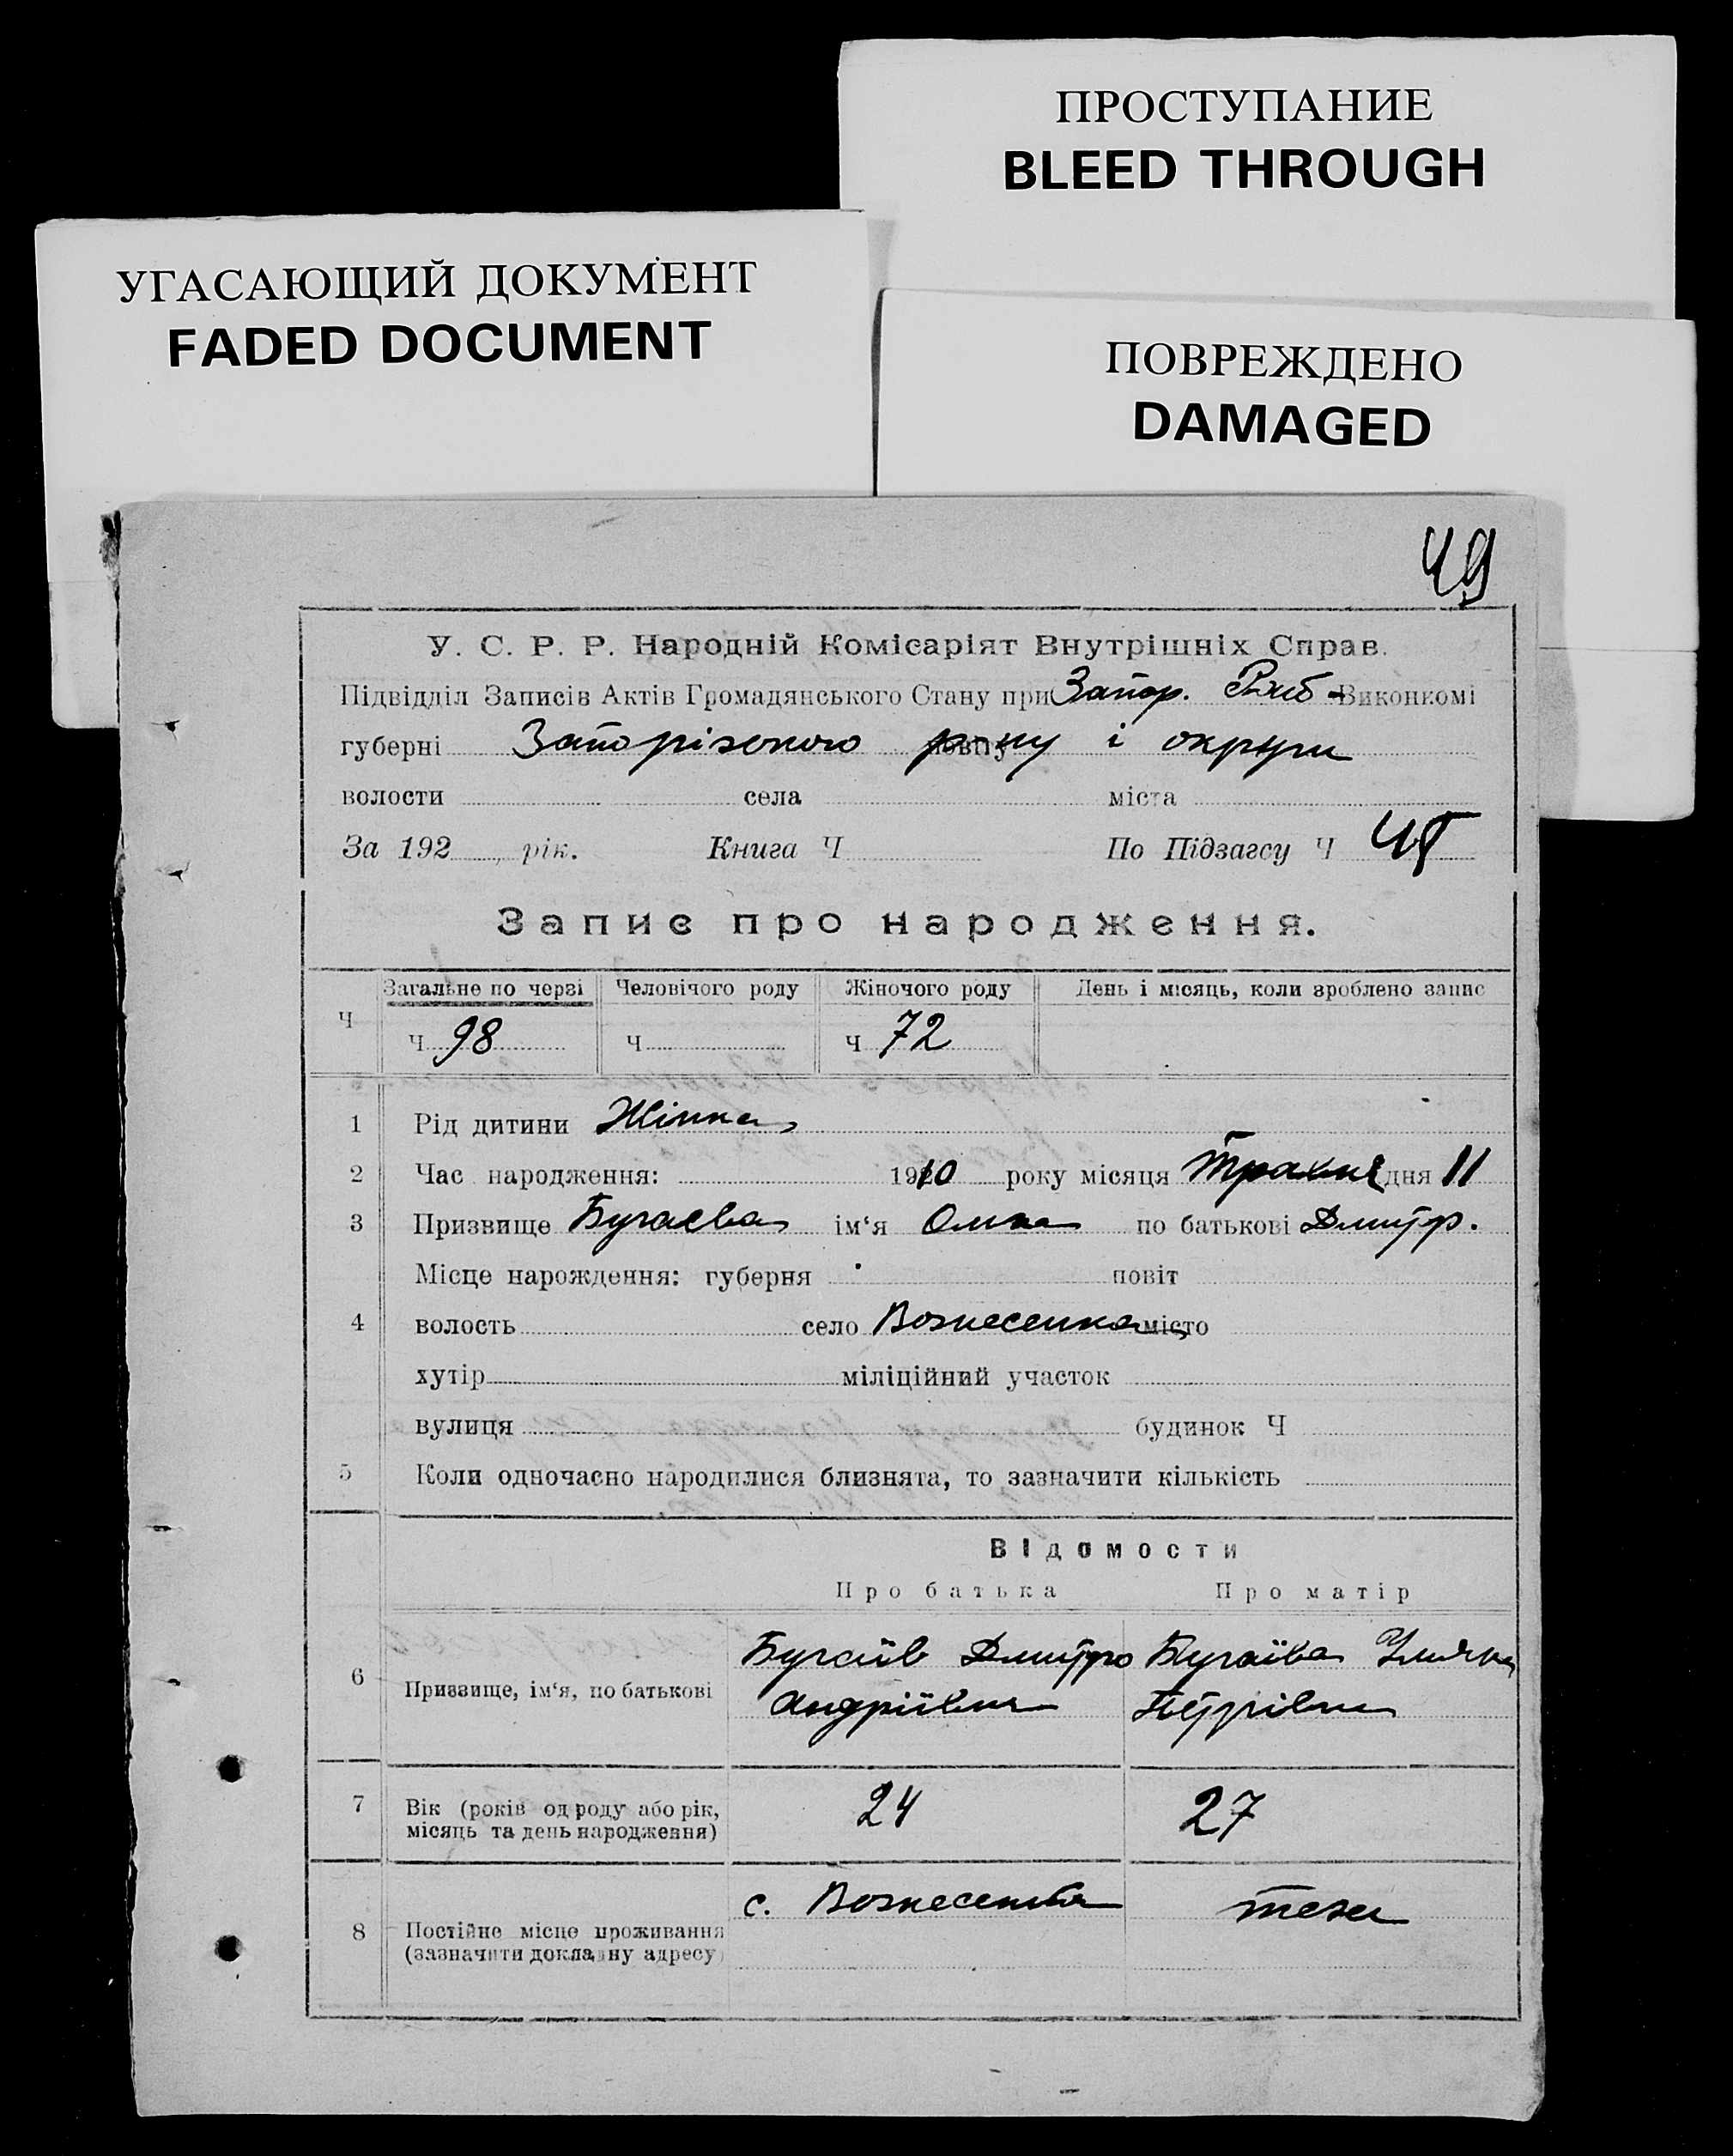 ПРОСТУПАНИЕ
BLEED THROUGH
УГАСАЮЩИЙ ДОКУМЕНТ
FADED DOCUMENT
ПОВРЕЖДЕНО
DAMAGED
49
У. С. Р. Р. Народній Комісаріят Внутрішніх Справ.
Підвідділ Записів Актів Громадянського Стану при Запор. Виконкомі
губерні Запорізького р-ну і округи
волости села міста
За 192 рік. Книга Ч По Підзагсу Ч
Запис про народження.
Загальне по черзі Человічого роду Жіночого роду День і місяць, коли зроблено запис
Ч Ч 98 Ч Ч 72
1 Рід дитини Жінка
2 Час народження: 1910 року місяця Травня дня 11
3 Призвище Бугаєва ім‘я Олна по батькові Дмитр.
Місце нарождення: губерня повіт
4 волость село Вознесенка місто
хутір міліційний участок
вулиця будинок Ч
5 Коли одночасно народилися близнята, то зазначити кількість
Відомости
Про батька Про матір
6 Призвище, ім‘я, по батькові Бугаїв Дмитро Бугаїва Уляна
Андріївич Петрівна
7 Вік (років од роду або рік, 24 27
місяць та день народження)
8 Постійне місце проживання с. Вознесенка теж
(зазначити докладну адресу)